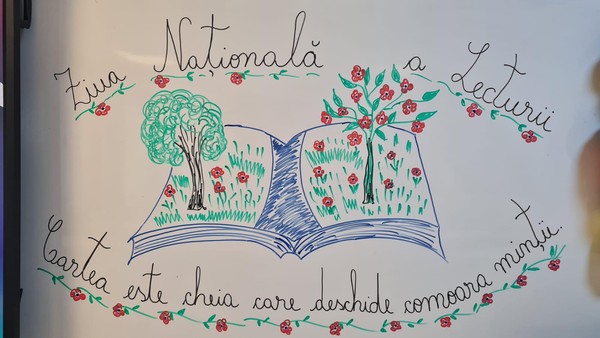 Ziua Națională a Lecturii
Cartea este cheia care deschide comoara minții.